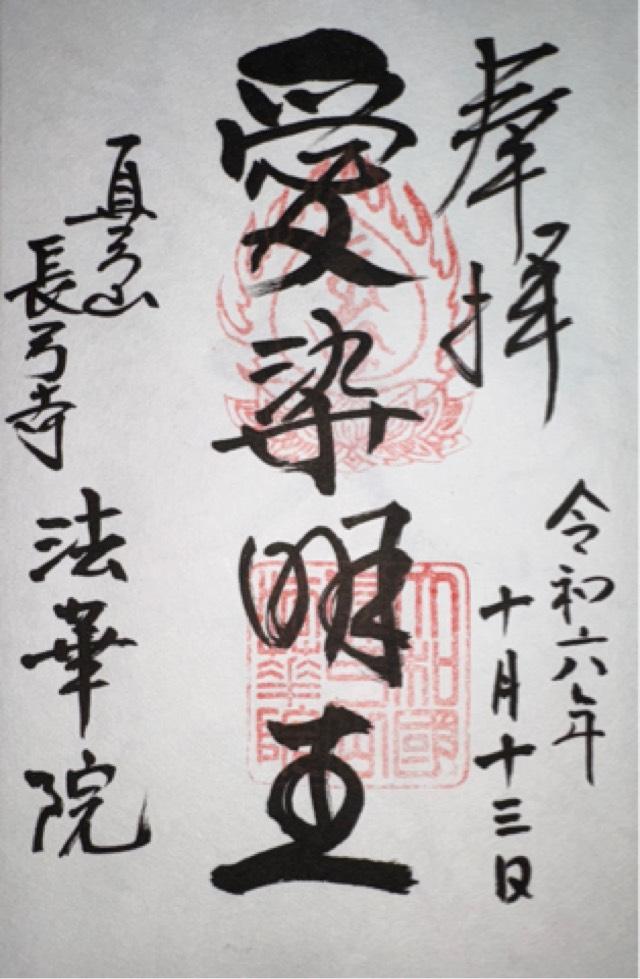 奉拝
令和六年
十月十三日
愛染明王
真弓山
長弓寺
法華院